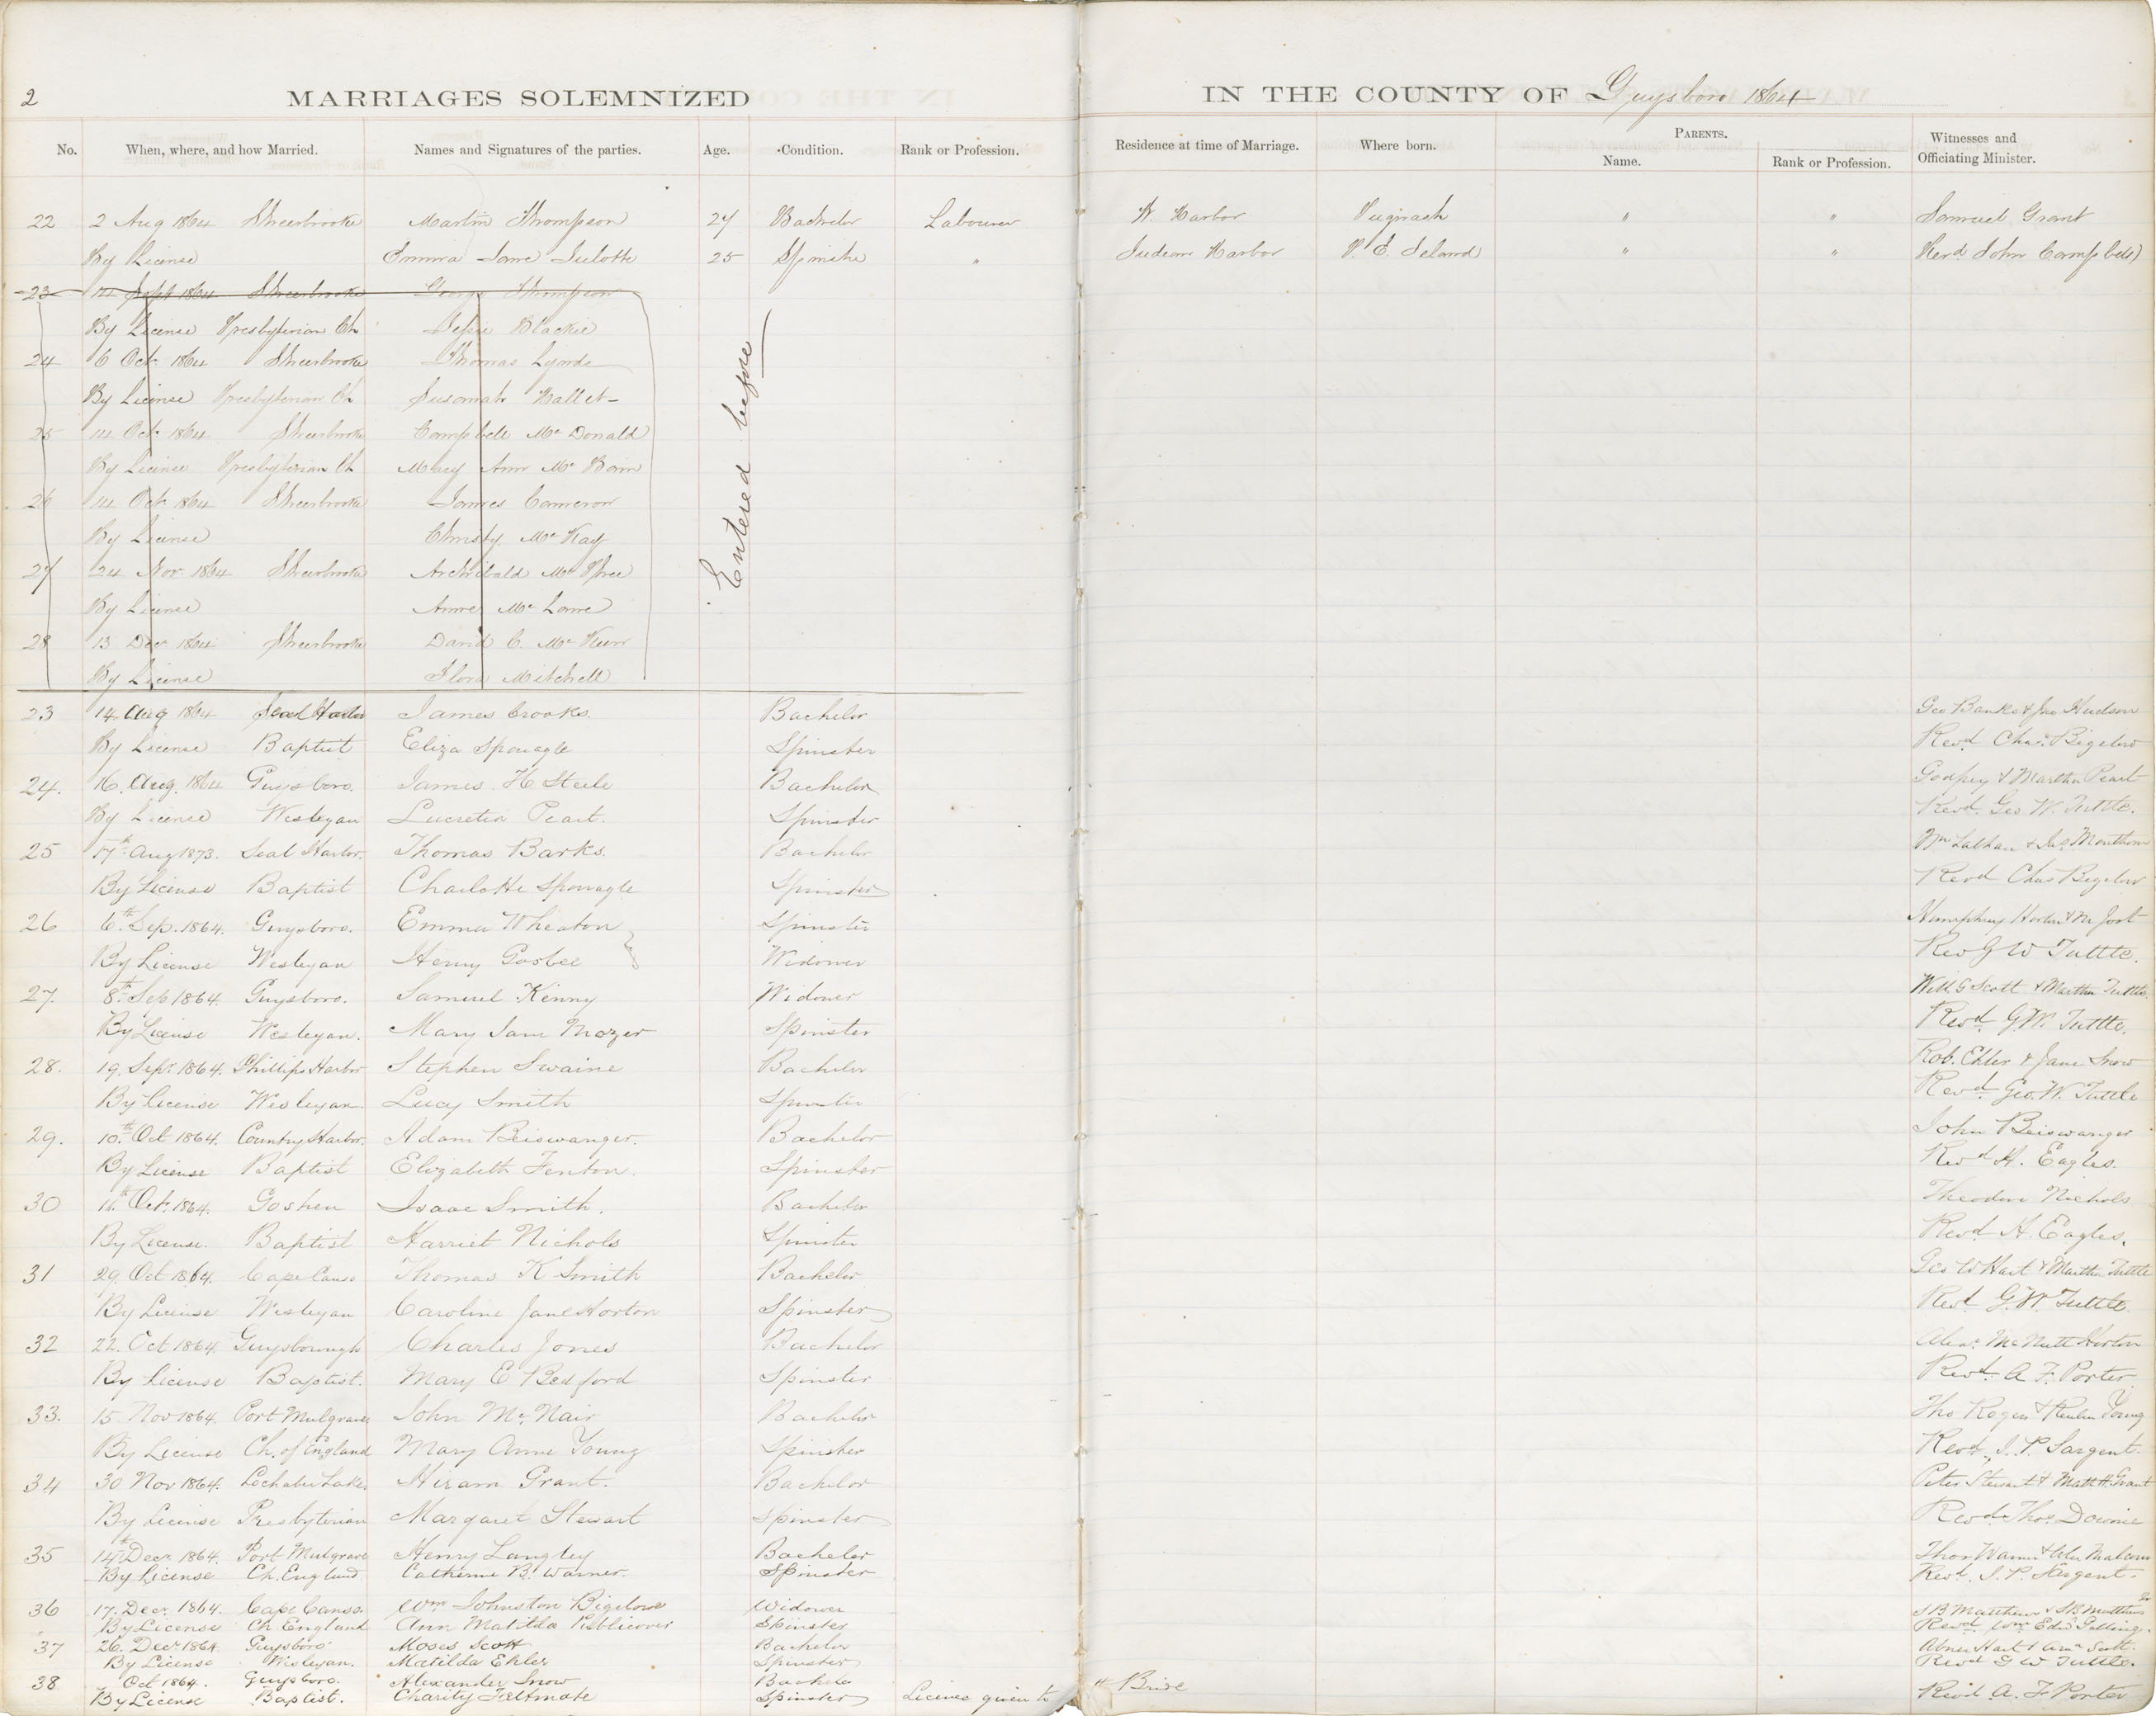 2
MARRIAGES SOLEMNIZED
IN THE COUNTY OF Guysboro 1864
No. When, where, and how Married. Names and Signatures of the parties. Age. Condition. Rank or Profession. Residence at time of Marriage. Where born. PARENTS. Name. Rank or Profession. Witnesses and Officiating Minister.
22 2 Aug 1864 Sherbrooke Martin Thompson 24 Bachelor Labourer W. Harbor Pugwash " " Samuel Grant
By License Emma Jane 25 Spinster " Indian Harbor P. E. Island " " Revd John Campbell
23 14 Sept 1864 Sherbrooke George Thompson
By License Presbyterian Ch Jessie Blackie
24 6 Oct 1864 Sherbrooke Thomas
By License Presbyterian Ch Susannah Hallet
25 14 Oct 1864 Sherbrooke Campbell Mc Donald
By License Presbyterian Ch Mary Ann Mc Bain
26 14 Oct 1864 Sherbrooke James Cameron
By License Christy Mc Kay
27 24 Nov 1864 Sherbrooke Archibald Mc Phee
By License Anne Mc Lane
28 13 Dec 1864 Sherbrooke David C. Mc Keen
By License Flora Mitchell
Entered before
23 14 Aug 1864 Seal Harbor James Crooks. Bachelor Geo Banks & Jas Hudson
By License Baptist Eliza Sponagle Spinster Revd Chas. Bigelow
24. 16. Aug. 1864 Guysboro. James. H Steele Bachelor Godfrey & Martha Peart
By License Wesleyan Lucretia Peart. Spinster Revd. Geo W. Tuttle.
25 17th Aug 1873. Seal Harbor. Thomas Barks. Bachelor Wm &
By License Baptist Charlotte Sponagle Spinster Revd Chas Bigelow
26 6th Sep. 1864. Guysboro. Emma Wheaton Spinster Humphrey
By License Wesleyan Henry Gosbee Widower Rev G W Tuttle.
27. 8th Sep 1864. Guysboro. Samuel Kinny Widower Will G Scott & Martha Tuttle
By License Wesleyan. Mary Jane Mozer Spinster Revd. G.W. Tuttle.
28. 19. Sepr. 1864. Phillips Harbor Stephen Swaine Bachelor Rob. Ehler & Jane Snow
By License Wesleyan Lucy Smith Spinster Revd Geo. W. Tuttle
29. 10th Oct 1864. Country Harbor. Adam Beiswanger. Bachelor John Beiswanger
By License Baptist Elizabeth Fenton. Spinster Revd H. Eagles.
30 11th Oct. 1864. Goshen Isaac Smith. Bachelor Theodore Nichols
By License. Baptist Harriet Nichols Spinster Revd. H. Eagles.
31 29. Oct 1864. Cape Canso Thomas K Smith Bachelor Geo W Hart & Martha Tuttle
By License Wesleyan Caroline Jane Horton Spinster Revd. G. W. Tuttle.
32 22. Oct 1864. Guysborough Charles Jones Bachelor Alexr. McNutt Horton
By License Baptist. Mary E Bedford Spinster Revd. A F. Porter
33. 15. Nov 1864. Port Mulgrave John Mc Nair Bachelor Tho Rogers & Reuben Young
By License Ch. of England Mary Anne Young Spinster Revd. J. P. Sargent.
34 30 Nov 1864. Lochaber Lake Hiram Grant. Bachelor Peter Stewart & Matt H. Grant
By License Presbyterian Margaret Stewart Spinster Revd. Thos. Downie
35 14th Decr. 1864. Port Mulgrave Henry Langley Bachelor Thos Warner & Alex Malcom
By License Ch. England Catherine B. Warner. Spinster Revd. J. P. Sargent.
36 17. Decr. 1864. Cape Canso Wm Johnston Bigelow Widower J B Matthews & S B Matthews
By License Ch. England Ann Matilda Spinster Revd Wm Edwd
37 26. Decr 1864. Guysboro Moses Scott Bachelor Abner Hart & Scott.
By License Wesleyan. Matilda Ehler Spinster Revd G W Tuttle.
38 Oct 1864. Guysboro. Alexander Snow Bachelor
By License Baptist. Charity Feltmate Spinster License given to Bride Revd. A. F Porter